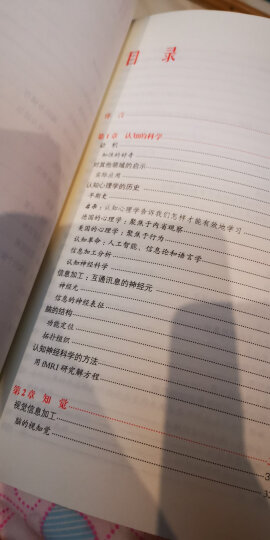 目 录
序 言
第1章 认知的科学
动 机
知性的好奇
对其他领域的启示
实际应用
认知心理学的历史
早期史
启示：认知心理学告诉我们怎样才能有效地学习
德国的心理学：聚焦于内省观察
美国的心理学：聚焦于行为
认知革命：人工智能、信息论和语言学
信息加工分析
认知神经科学
信息加工：互通讯息的神经元
神经元
信息的神经表征
脑的结构
功能定位
拓扑组织
认知神经科学的方法
用fMRI研究解方程
第2章 知 觉
视觉信息加工
脑的视知觉